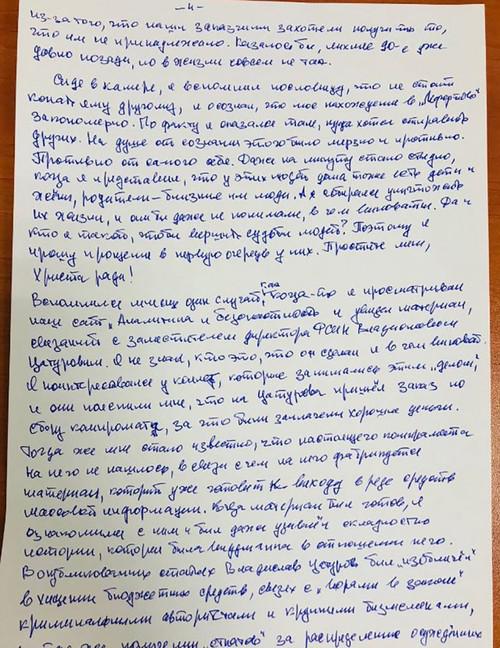 - 4 -
из-за того, что наши заказчики захотели получить то,
что им не принадлежало. Казалось бы, лихие 90-е уже
давно позади, но в жизни совсем не так.
Сидя в камере, я вспомнил пословицу, что не стоит
копать яму другому, и осознал, что мое нахождение в "Лефортово"
закономерно. По факту я оказался там, куда хотел отправить
других. На душе от осознания этого было мерзко и противно.
Противно от самого себя. Даже на минуту стало стыдно,
когда я представил, что у этих людей дома тоже есть дети и
жёны, родители - близкие им люди. А я собирался уничтожить
их жизни, и они бы даже не понимали, в чем виноваты. Да и
кто я такой, чтобы вершить судьбы людей? Поэтому я
прошу прощения в первую очередь у них. Простите меня,
Христа ради!
Вспомнился мне ещё один случай. Когда-то я просматривал
наш сайт "Аналитика и безопасность" и увидел материал,
связанный с заместителем директора ФСИН Владиславом
Цатуровым. Я не знал, кто это, что он сделал и в чем виноват.
Я поинтересовался у коллег, которые занимались этим "делом",
и они пояснили мне, что на Цатурова пришёл заказ по
сбору компромата, за что были заплачены хорошие деньги.
Тогда же мне стало известно, что настоящего компромата
на него не нашлось, в связи с чем на него фабрикуется
материал, который уже готовят к выходу в ряде средств
массовой информации. Когда материал был готов, я
ознакомился с ним и был даже удивлён складностью
истории, которая была выдумана в отношении него.
В опубликованных статьях Владислав Цатуров был "изобличён"
в хищении бюджетных средств, связях с "ворами в законе"
криминальными авторитетами и крупными бизнесменами,
получении "откатов" за распределение осуждённых